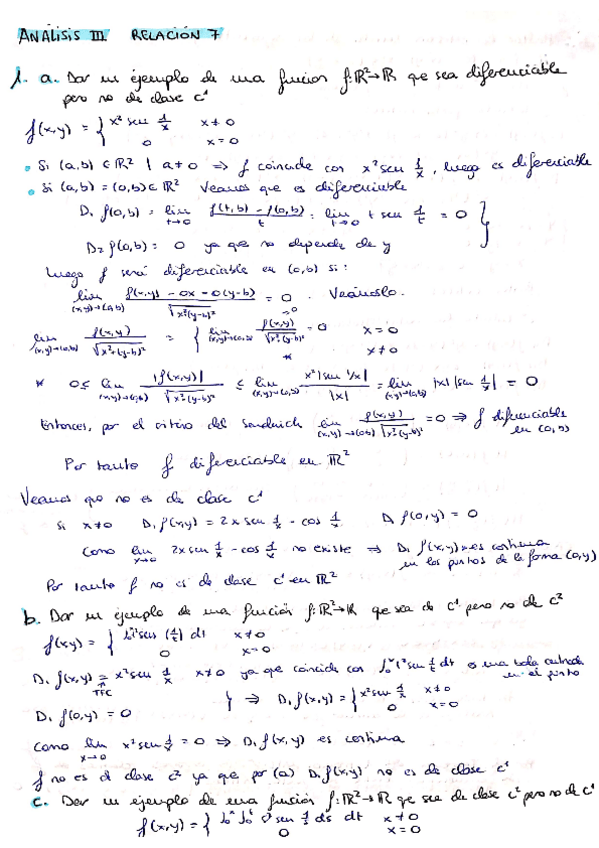 ANÁLISIS III RELACIÓN 7
1. a. Dar un ejemplo de una función f: ℝ²→ℝ que sea diferenciable
pero no de clase C¹
f(x,y) = { x² sen 1/x x≠0
0 x=0
• Si (a,b) ∈ ℝ² | a≠0 ⇒ f coincide con x² sen 1/x, luego es diferenciable
• Si (a,b) = (0,b) ∈ ℝ² Veamos que es diferenciable
D₁ f(0,b) = lim t→0 f(t,b) - f(0,b) / t = lim t→0 t sen 1/t = 0 }
D₂ f(0,b) = 0 ya que no depende de y
Luego f será diferenciable en (0,b) si:
lim (x,y)→(0,b) f(x,y) - 0x - 0(y-b) / √x²+(y-b)² = 0. Veámoslo.
lim (x,y)→(0,b) f(x,y) / √x²+(y-b)² = { lim (x,y)→(0,b) f(x,y) / √x²+(y-b)² = 0 x=0
* x≠0
* 0 ≤ lim (x,y)→(0,b) |f(x,y)| / √x²+(y-b)² ≤ lim (x,y)→(0,b) x² |sen 1/x| / |x| = lim (x,y)→(0,b) |x| |sen 1/x| = 0
Entonces, por el criterio del sandwich lim (x,y)→(0,b) f(x,y) / √x²+(y-b)² = 0 ⇒ f diferenciable
en (0,b)
Por tanto f diferenciable en ℝ²
Veamos que no es de clase C¹
Si x≠0 D₁ f(x,y) = 2x sen 1/x - cos 1/x D₁ f(0,y) = 0
Como lim x→0 2x sen 1/x - cos 1/x no existe ⇒ D₁ f(x,y) no es continua
en los puntos de la forma (0,y)
Por tanto f no es de clase C¹ en ℝ²
b. Dar un ejemplo de una función f: ℝ²→ℝ que sea de C¹ pero no de C²
f(x,y) = { ∫₀ˣ t² sen (1/t) dt x≠0
0 x=0
D₁ f(x,y) = x² sen 1/x x≠0 ya que coincide con ∫₀ˣ t² sen 1/t dt en una bola centrada
TFC en el punto
D₁ f(0,y) = 0 } ⇒ D₁ f(x,y) = { x² sen 1/x x≠0
0 x=0
Como lim x→0 x² sen 1/x = 0 ⇒ D₁ f(x,y) es continua
f no es de clase C² ya que por (a) D₁ f(x,y) no es de clase C¹
c. Dar un ejemplo de una función f: ℝ²→ℝ que sea de clase C² pero no de C
f(x,y) = { ∫₀ˣ ∫₀ᵗ s² sen 1/s ds dt x≠0
0 x=0